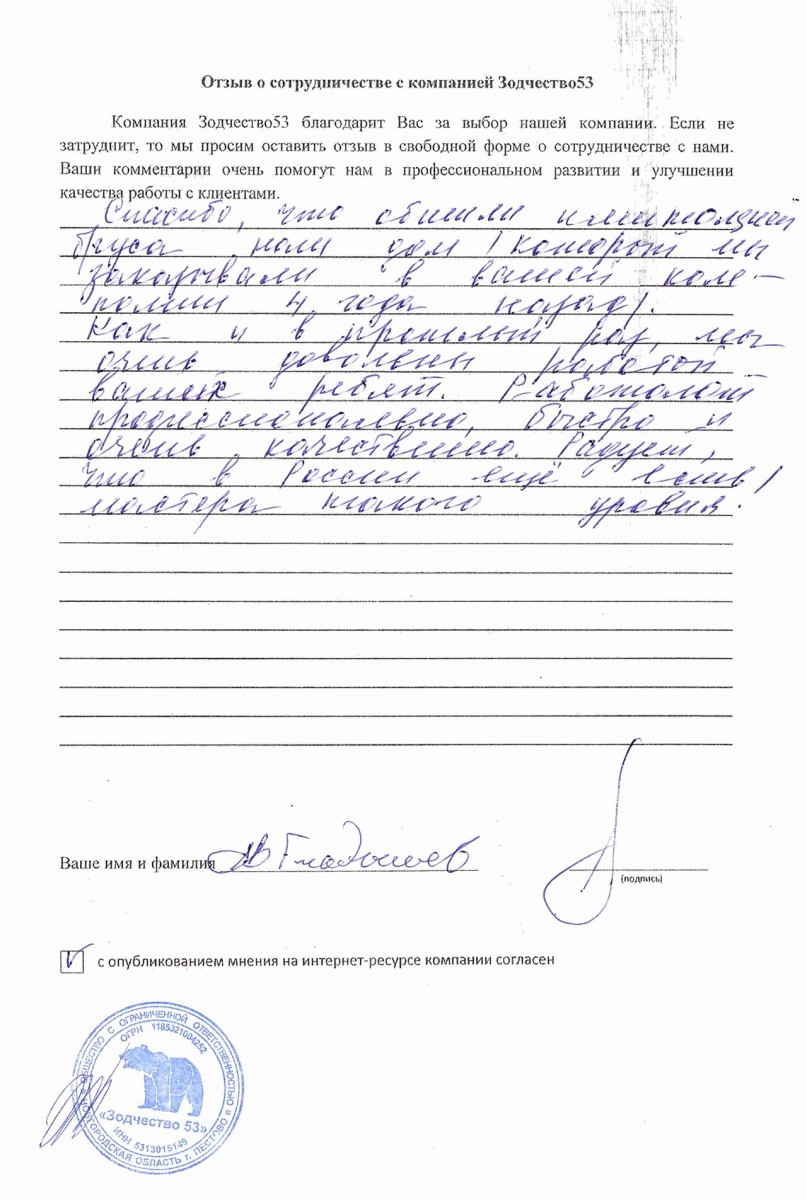 Отзыв о сотрудничестве с компанией Зодчество53
Компания Зодчество53 благодарит Вас за выбор нашей компании. Если не
затруднит, то мы просим оставить отзыв в свободной форме о сотрудничестве с нами.
Ваши комментарии очень помогут нам в профессиональном развитии и улучшении
качества работы с клиентами.
Спасибо, что обшили имитацией
бруса наш дом (который мы
заказывали в вашей ком-
пании 4 года назад).
Как и в прошлый раз, мы
очень довольны работой
ваших ребят. Работают
профессионально, быстро и
очень качественно. Радует,
что в России ещё есть
мастера такого уровня.
Ваше имя и фамилия Гладышев
(подпись)
V с опубликованием мнения на интернет-ресурсе компании согласен
ОБЩЕСТВО С ОГРАНИЧЕННОЙ ОТВЕТСТВЕННОСТЬЮ
ОГРН 1185321004252
«Зодчество 53»
ИНН 5313015149
НОВГОРОДСКАЯ ОБЛАСТЬ г. ПЕСТОВО